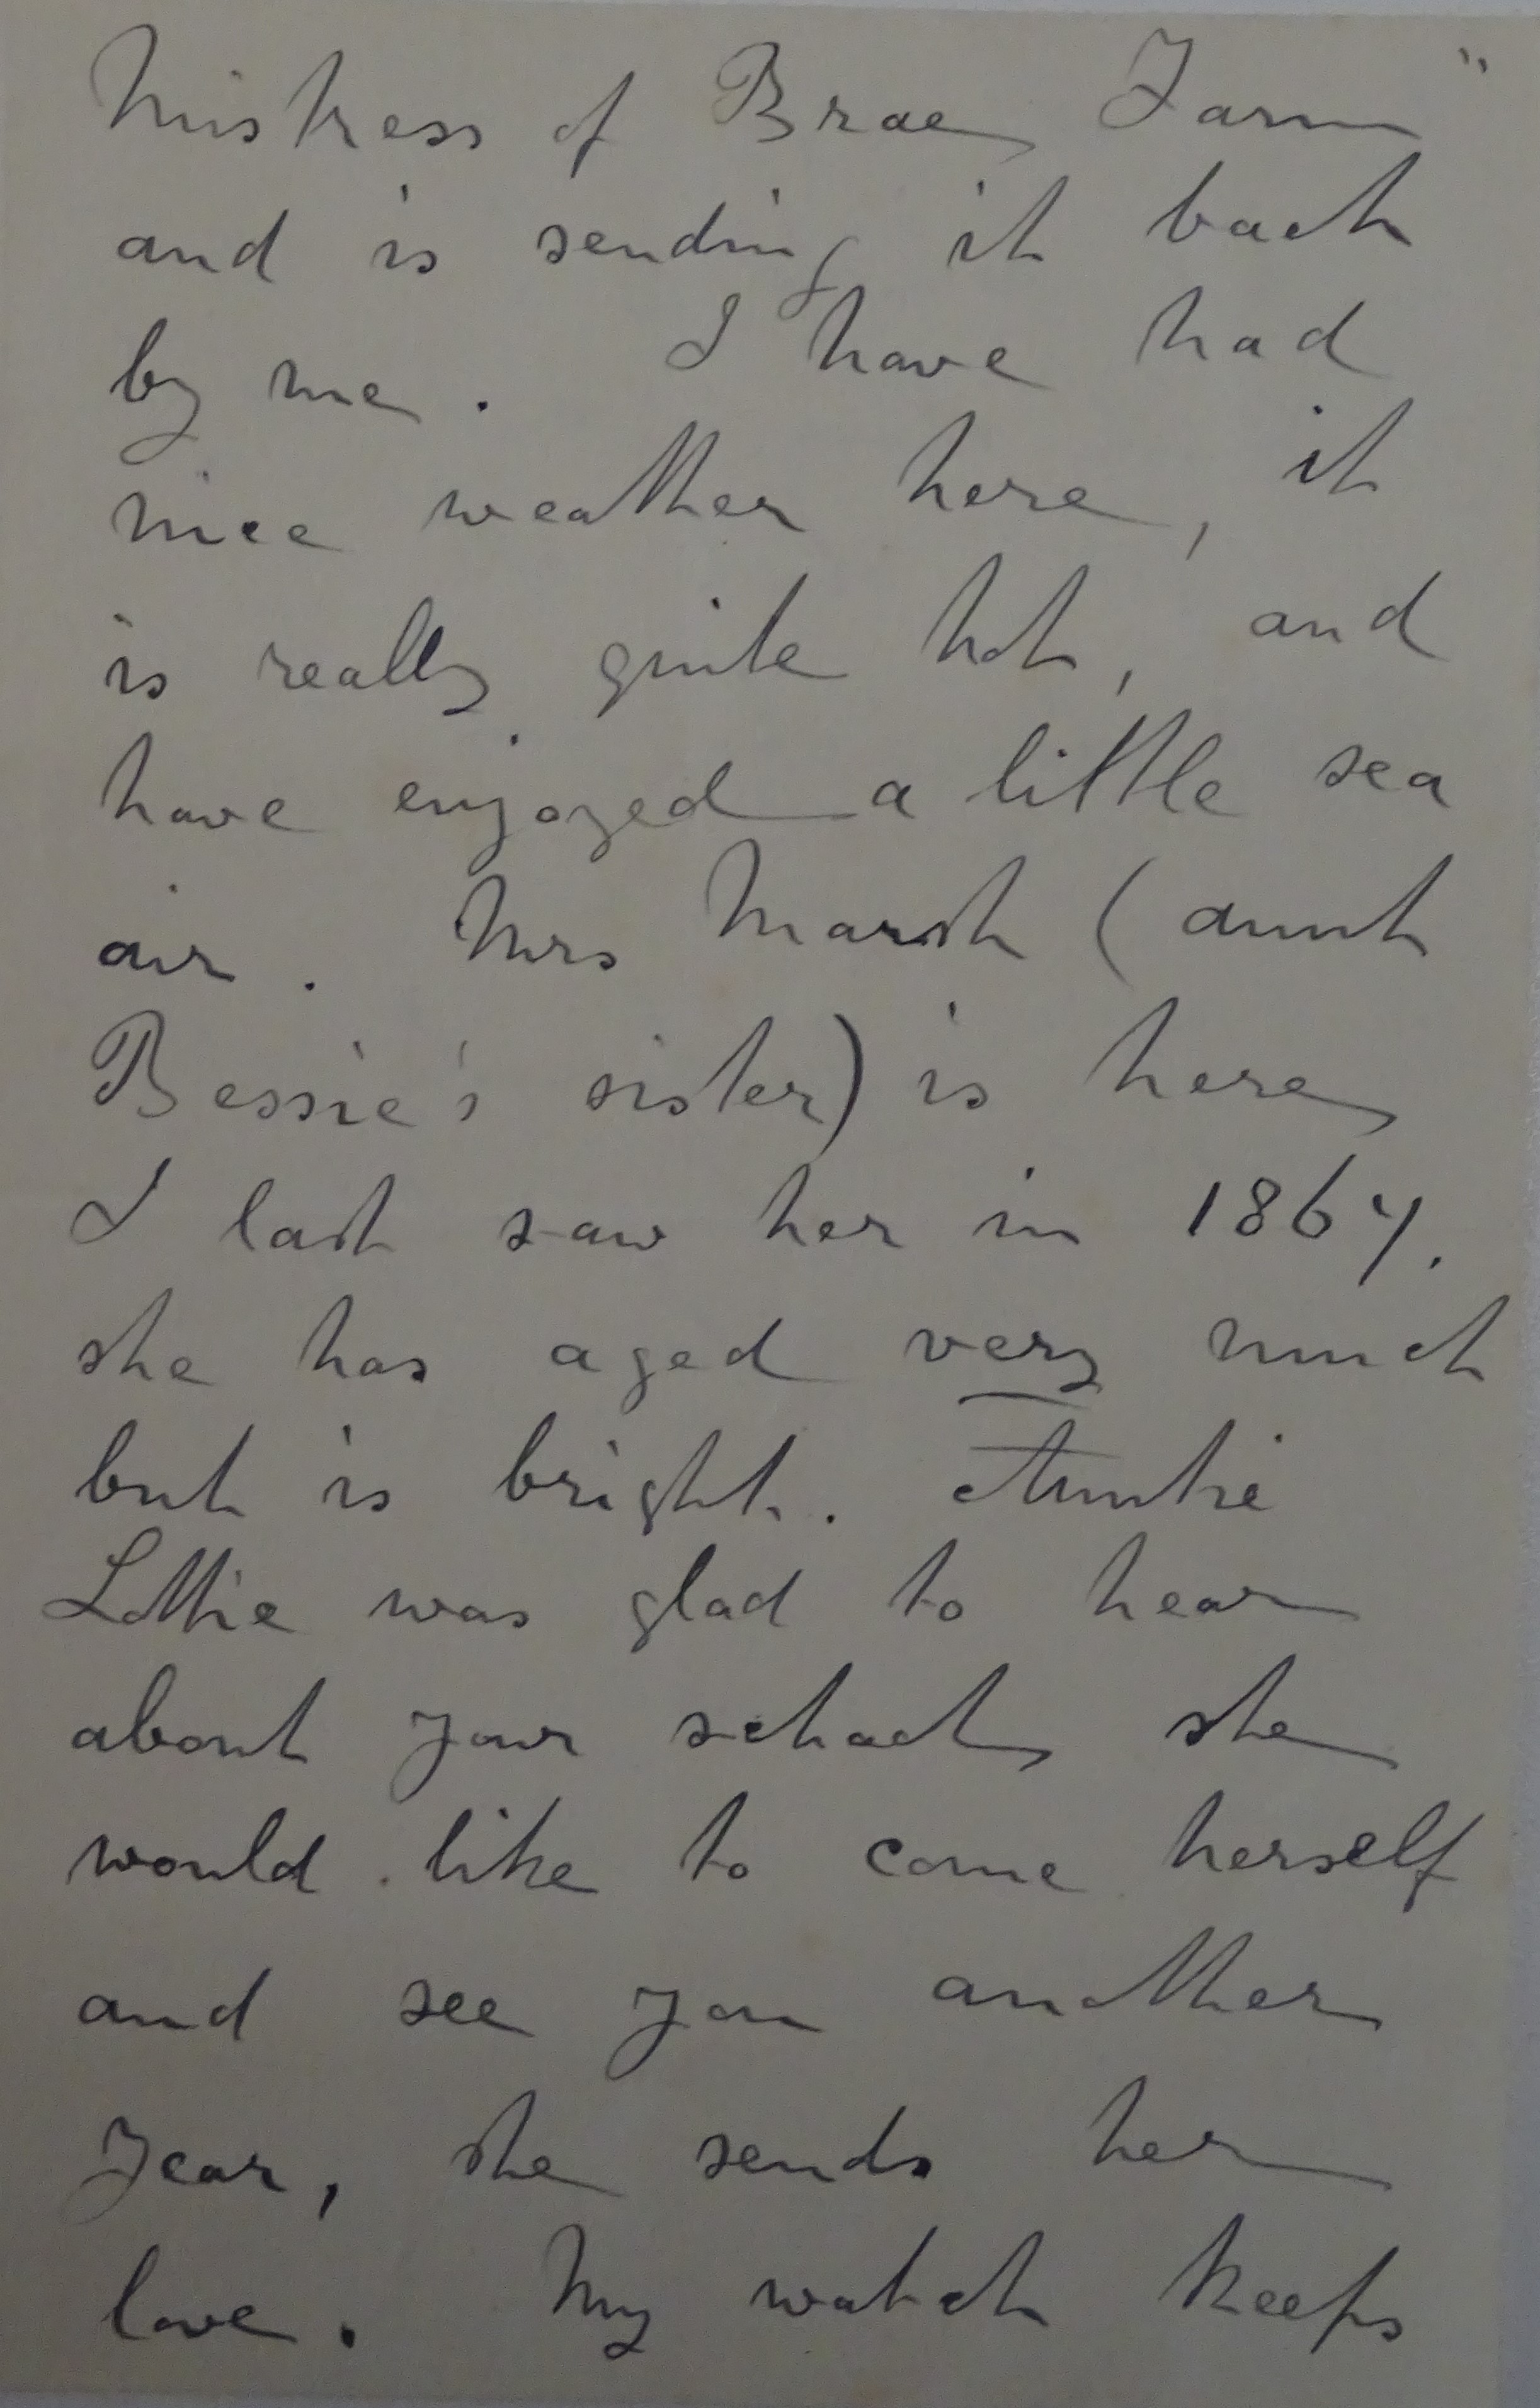 Mistress of Brae Farm"
and is sending it back
by me. I have had
nice weather here, it
is really quite hot, and
have enjoyed a little sea
air. Mrs Marsh (aunt
Bessie's sister) is here
I last saw her in 1867.
she has aged very much
but is bright. Auntie
Lottie was glad to hear
about your school she
would like to come herself
and see you another
year, she sends her
love. My watch keeps